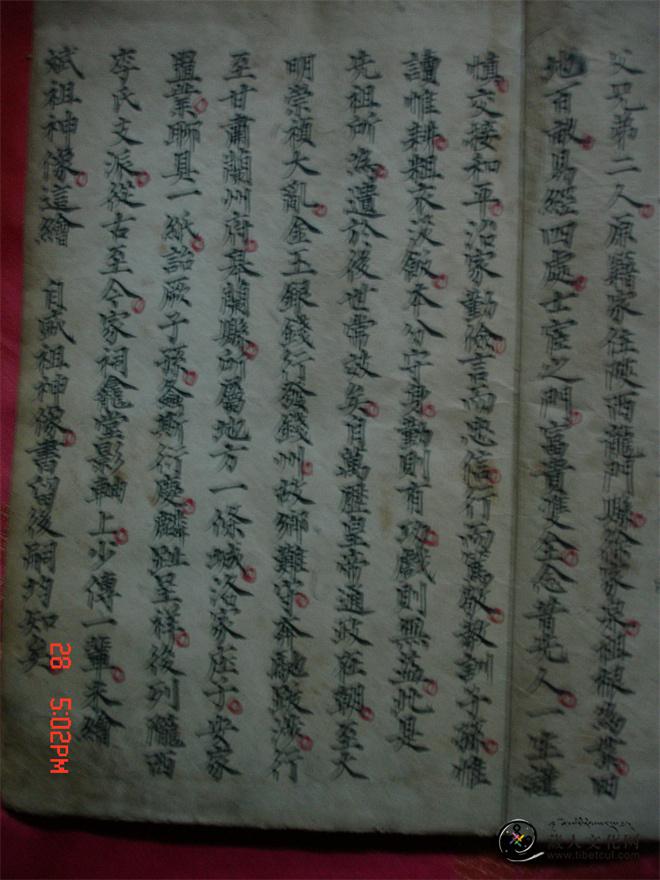 父兄弟二人原籍家住陕西龍門縣徐家泉祖禄為葉田
地百畝易經四處士宦之門富貴雙全念昔先人一生謹
慎交接和平治家勤儉言而忠信行而篤敬教訓子孫惟
讀惟耕粗衣淡飯本分守身勤則有功戲則無益此是
先祖所為遺於後世常故矣自萬歷皇帝通政在朝至大
明崇禎大亂金玉銀錢行發錢州故鄉難守奔馳跋涉行
至甘肅蘭州府皋蘭縣所屬地方一條城洛家庄子安家
置業聊具一紙詒厥子孫螽斯衍慶麟趾呈祥後列隴西
李氏支派從古至今家祠龕堂影軸上少傳一輩未繪
斌祖神像這繪 自成祖神像書留後嗣均知矣
28 5:02PM
藏人文化网
www.tibetcul.com